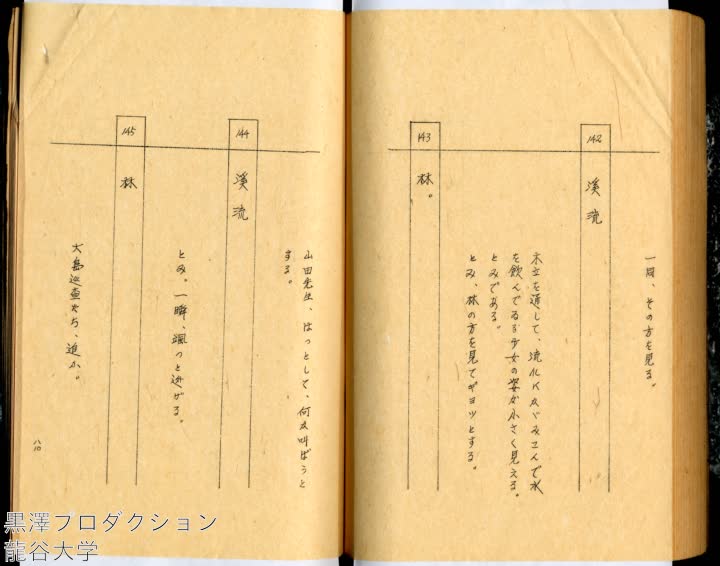 一同、その方を見る。
142
溪流
木立を通して、流れにかゞみこんで水
を飲んでゐる少女の姿が小さく見える。
とみである。
とみ、林の方を見てギョッとする。
143
林。
山田先生、はっとして、何か叫ばうと
する。
144
溪流
とみ。一瞬、颯っと逃げる。
145
林
大島巡査たち、追ふ。
八〇
黒澤プロダクション
龍谷大学